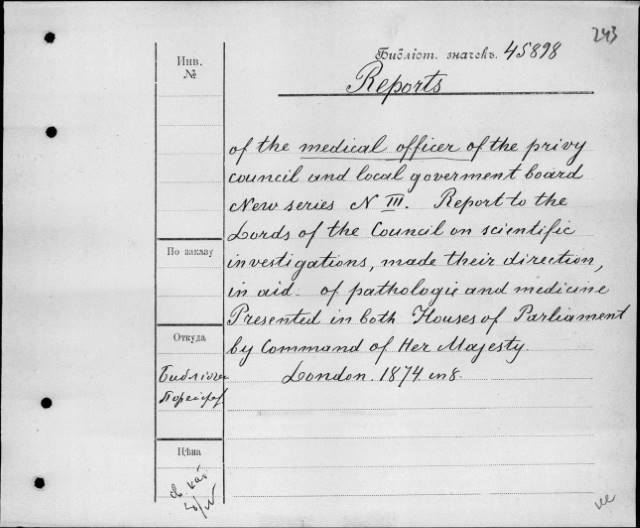 243
Инв.
№
Библіот. значекъ. 45898
Reports
of the medical officer of the privy
council and local goverment board
New series N III. Report to the
Lords of the Council on scientific
investigations, made their direction,
in aid of pathologie and medicine
Presented in both Houses of Parliament
by Command of Her Majesty.
London. 1874. in 8.
По заказу
Откуда
Цѣна